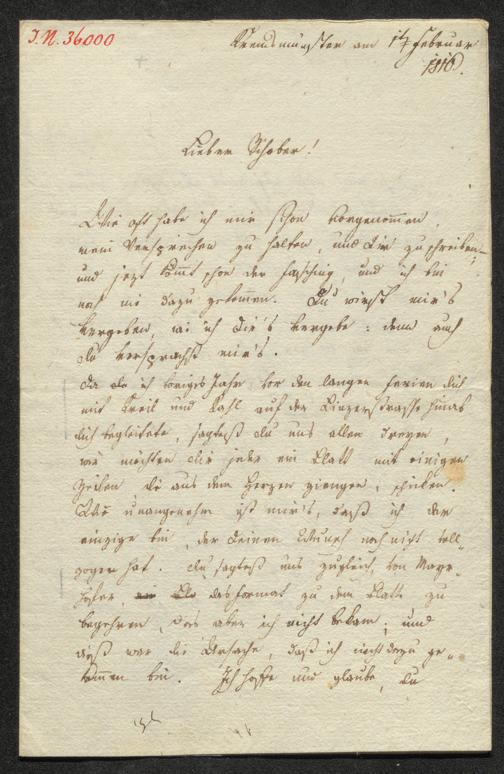 I.N. 36000
Kremsmünster am 17 Februar
1816.
Lieber Schober!
Wie oft habe ich mir schon vorgenommen,
mein Versprechen zu halten, und Dir zu schreiben;
und jezt kommt schon der Fasching, und ich bin
noch nie dazu gekommen. Du wirst mir's
vergeben, wie ich Dir's vergebe: denn auch
du versprachst mir's.
Da ich voriges Jahr vor den langen Ferien dich
mit Kreil und Kahl auf der Linzerstrasse hinab
dich begleitete, sagtest du uns allen Dreyen,
wir möchten dir jeder ein Blatt mit einigen
Zeilen die aus dem Herzen giengen, schicken.
Wie unangenehm ist mir's, daß ich der
einzige bin, der Deinen Wunsch noch nicht voll-
zogen hat. Du sagtest uns zugleich, von Mayr-
hofer, das Format zu dem Blatte zu
begehren, das aber ich nicht bekam; und
dieß war die Ursache, daß ich nicht dazu ge-
kommen bin. Ich hoffe und glaube, du